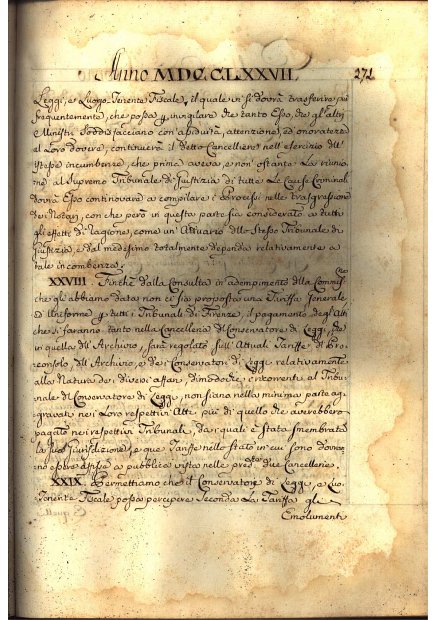 Anno MDCCLXXVII. 271
Leggi, e Luogo Tenente Fiscale, il quale vi si dovrà trasferire più
frequentemente, che possa p invigilare che tanto Esso, che gl'altri
Ministri soddisfacciano con assiduità, attenzione, ed onoratezza
al Loro dovere, continuerà il detto Cancelliere nell'esercizio dell'
istesse incumbenze, che prima aveva, e non ostante La riunio-
ne al Supremo Tribunale di Giustizia di tutte Le Cause Criminali
dovrà Esso continovare a compilare i Processi nelle trasgressioni
dei Notari, con che però in questa parte sia considerato a tutti
gli effetti di Ragione, come un Attuario dello stesso Tribunale di
Giustizia, e dal medesimo totalmente dependa relativamente a
tale incombenza.
XXVIII. Finchè dalla Consulta in adempimento della Commis-
che gli abbiamo data, non ci sia proposta una Tariffa Generale,
ed Uniforme p tutti i Tribunali di Firenze, il pagamento degl'Atti
che si faranno tanto nella Cancelleria del Conservatore di Leggi, che
in quella dell'Archivio, sarà regolato sull'Attuali Tariffe del Pro-
consolo, dell'Archivio, e dei Conservatori di Leggi relativamente
alla Natura dei diversi affari, dimodochè i ricorrenti al Tribu-
nale del Conservatore di Leggi, non siano nella minima parte ag-
gravati nei Loro respettivi Atti più di quello che averebbero
pagato nei respettivi Tribunali, dai quali è stata smembrata
la Giurisdizione, e que Tariffe nello stato in cui sono dovran-
no essere affisse a pubblica vista nelle pred.tte due Cancellerie.
XXIX. Permettiamo che il Conservatore di Leggi, e Luo-
Tenente Fiscale possa percipere secondo La Tariffa gli
Emolumenti